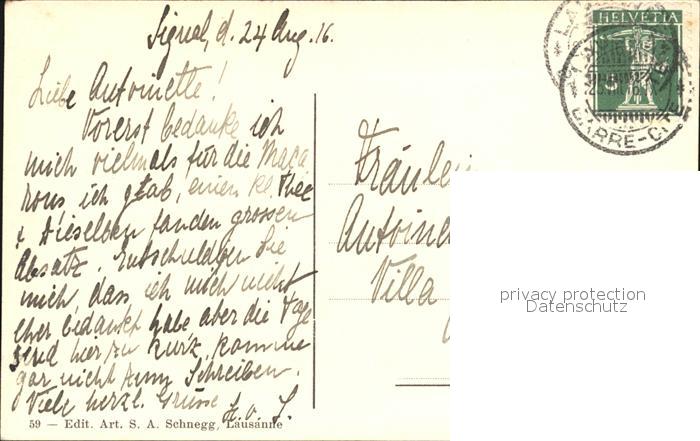 Signal, d. 24 Aug. 16.
HELVETIA
Liebe Antoinette!
Vorerst bedanke ich
mich vielmals für die Maca
rons, ich gab, einen kl. Thee
& Dieselben fanden grossen
Absatz. Entschuldgen Sie
mich, dass ich mich nicht
eher bedankt habe aber die Tage
sind hier zu kurz, komme
gar nicht zum Schreiben.
Viele herzl. Grüsse
H. v. S.
Fräulein
Antoine
Villa
privacy protection
Datenschutz
59 — Edit. Art. S. A. Schnegg, Lausanne